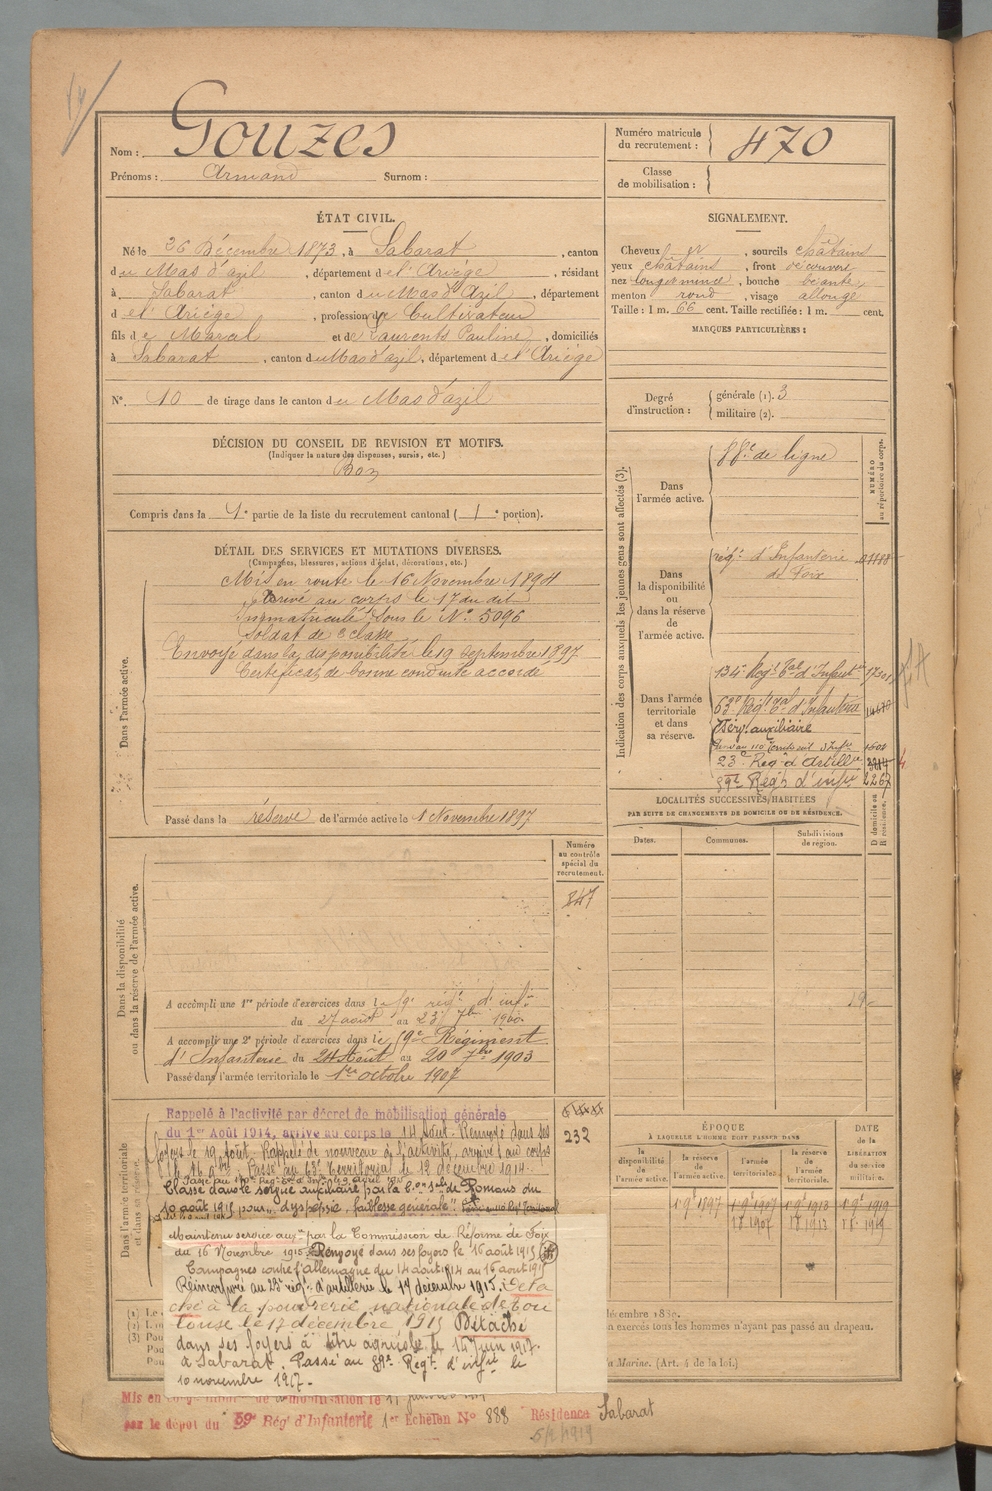 Nom : Gouzes
Prénoms : Armand Surnom :
Numéro matricule du recrutement : 470
Classe de mobilisation :
ÉTAT CIVIL.
Né le 26 Décembre 1873, à Sabarat, canton
du Mas d'azil, département de l'Ariège, résidant
à Sabarat, canton du Mas d'Azil, département
de l'Ariège, profession de Cultivateur
fils de Marcel et de Laurents Pauline, domiciliés
à Sabarat, canton du Mas d'azil, département de l'Ariège
N° 10 de tirage dans le canton du Mas d'azil
SIGNALEMENT.
Cheveux et, sourcils châtains
yeux châtains, front découvert
nez long et mince, bouche béante,
menton rond, visage allongé
Taille : 1 m. 66 cent. Taille rectifiée : 1 m. cent.
MARQUES PARTICULIÈRES :
Degré d'instruction : générale (1). 3
militaire (2).
DÉCISION DU CONSEIL DE REVISION ET MOTIFS.
(Indiquer la nature des dispenses, sursis, etc.)
Bon
Compris dans la 1e partie de la liste du recrutement cantonal (1e portion).
DÉTAIL DES SERVICES ET MUTATIONS DIVERSES.
(Campagnes, blessures, actions d'éclat, décorations, etc.)
Dans l'armée active.
Mis en route le 16 Novembre 1894
Arrivé au corps le 17 du dit
Immatriculé sous le N° 5096
Soldat de 2e classe
Envoyé dans la disponibilité le 19 septembre 1897
Certificat de bonne conduite accordé
Passé dans la réserve de l'armée active le 1 Novembre 1897
Indication des corps auxquels les jeunes gens sont affectés (3).
NUMÉRO au répertoire du corps.
Dans l'armée active. 88e de ligne
Dans la disponibilité ou dans la réserve de l'armée active.
régt d'Infanterie
de Foix
Dans l'armée territoriale et dans sa réserve.
134e Régt Tal d'Infanterie
63e Régt Tal d'Infanterie
Serv. auxiliaire
23e Régt d'Artille
89e Régt d'infie 2267
LOCALITÉS SUCCESSIVES HABITÉES
PAR SUITE DE CHANGEMENTS DE DOMICILE OU DE RÉSIDENCE.
Dates. Communes. Subdivisions de région. D domicile ou R résidence.
Dans la disponibilité ou dans la réserve de l'armée active.
Numéro au contrôle spécial du recrutement.
847
A accompli une 1re période d'exercices dans le 59e régt d'inf.
du 27 août au 23 7bre 1900
A accompli une 2e période d'exercices dans le 59e Régiment
d'Infanterie du 24 Août au 20 7bre 1903
Passé dans l'armée territoriale le 1er octobre 1907
Dans l'armée territoriale et dans sa réserve.
232
Rappelé à l'activité par décret de mobilisation générale
du 1er Août 1914, arrivé au corps le 14 Aout. Renvoyé dans ses
foyers le 19 Août. Rappelé de nouveau à l'activité, arrivé au corps
le 16 9bre. Passé au 63e Territorial le 12 décembre 1914.
Classé dans le service auxiliaire par la Con Sle de Romans du
10 août 1915 pour "dyspepsie, faiblesse générale".
Maintenu service auxre par la Commission de Réforme de Foix
du 16 Novembre 1915. Renvoyé dans ses foyers le 16 août 1915
Campagnes contre l'allemagne du 14 aout 1914 au 16 aout 1915
Réincorporé au 23e régt d'artillerie le 17 décembre 1915. Déta
ché à la poudrerie nationale de Tou
louse le 17 décembre 1915 Détaché
dans ses foyers à titre agricole le 15 Juin 1917.
à Sabarat. Passé au 89e Régt d'infie le
10 novembre 1917.
ÉPOQUE
À LAQUELLE L'HOMME DOIT PASSER DANS
la disponibilité de l'armée active. la réserve de l'armée active. l'armée territoriale. la réserve de l'armée territoriale.
DATE de la LIBÉRATION du service militaire.
1 9e 1897 1 9e 1907 1 9e 1913 1 9e 1919
(1)
(2)
(3)
décembre 1889.
exercés tous les hommes n'ayant pas passé au drapeau.
Marine. (Art. 4 de la loi.)
Mis en
par le dépôt du 59e Régt d'Infanterie 1er Echelon N° 888 Résidence Sabarat